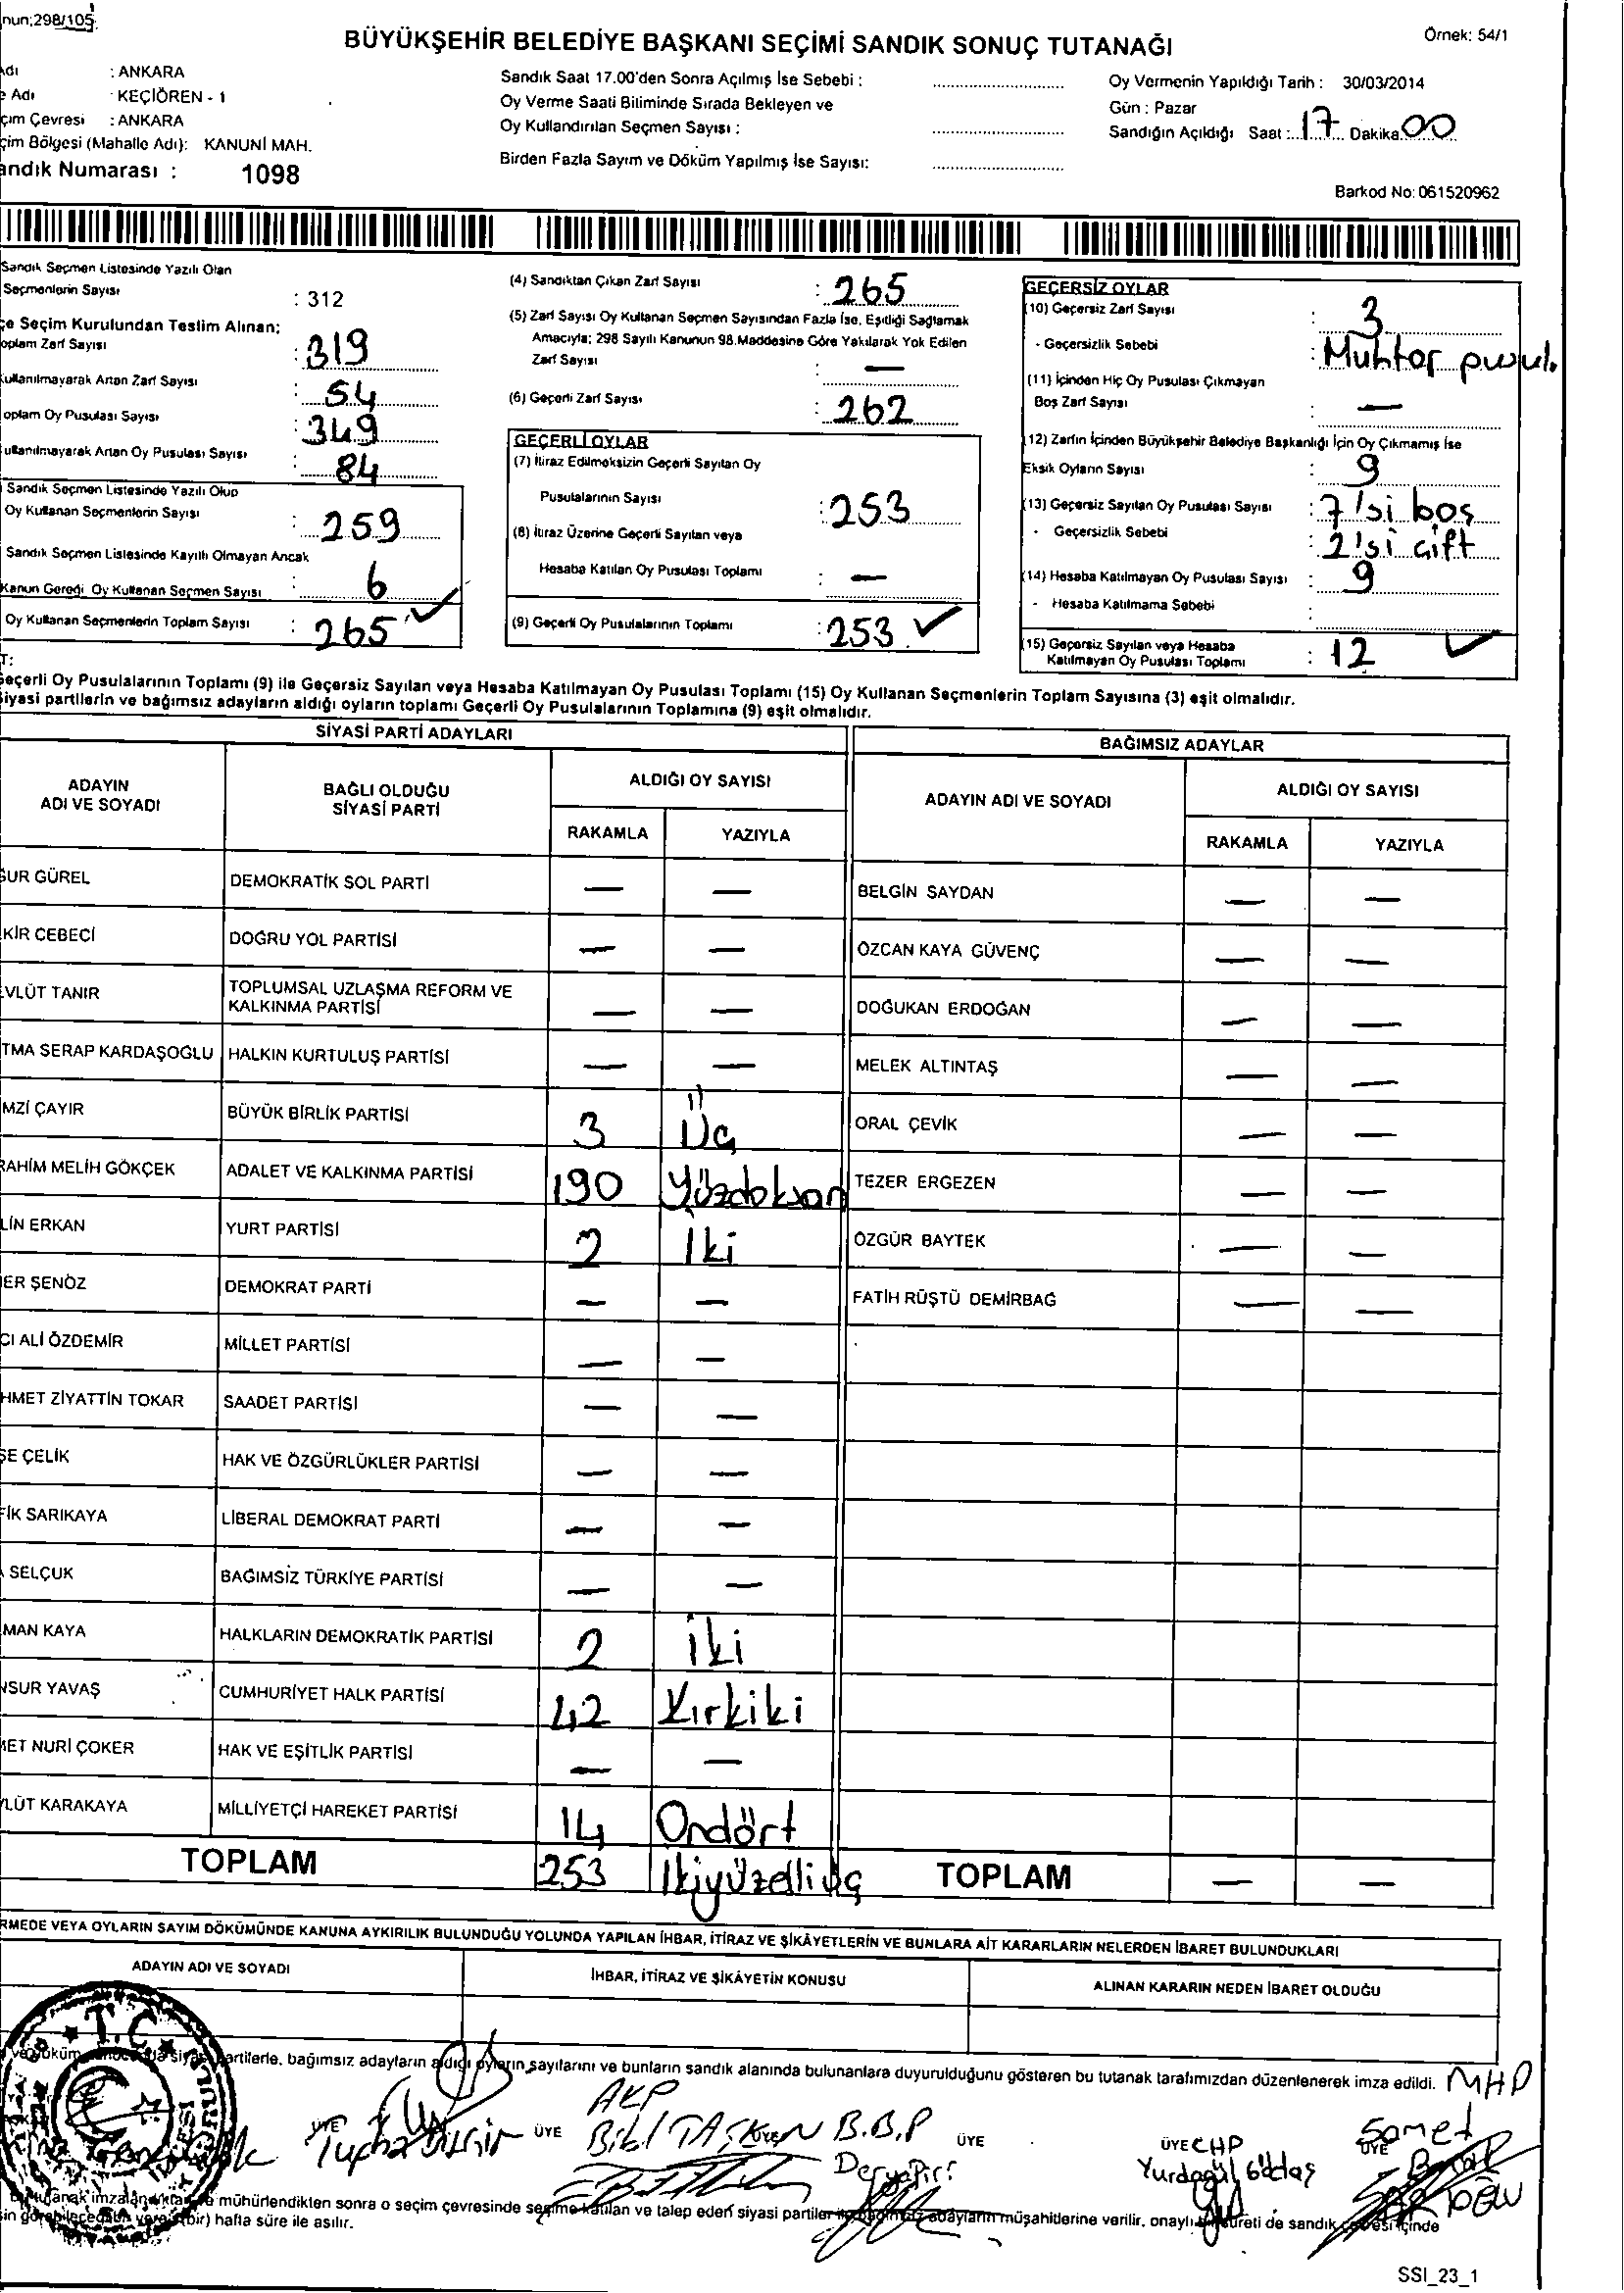 nun;298/105
BÜYÜKŞEHİR BELEDİYE BAŞKANI SEÇİMİ SANDIK SONUÇ TUTANAĞI
Örnek: 54/1
: ANKARA
Adı : KEÇİÖREN - 1
çim Çevresi : ANKARA
çim Bölgesi (Mahalle Adı): KANUNİ MAH.
andık Numarası : 1098
Sandık Saat 17.00'den Sonra Açılmış İse Sebebi :
Oy Verme Saati Bitiminde Sırada Bekleyen ve
Oy Kullandırılan Seçmen Sayısı :
Birden Fazla Sayım ve Döküm Yapılmış İse Sayısı:
Oy Vermenin Yapıldığı Tarih : 30/03/2014
Gün : Pazar
Sandığın Açıldığı Saat : 17 Dakika 00
Barkod No: 061520962
Sandık Seçmen Listesinde Yazılı Olan
Seçmenlerin Sayısı : 312
çe Seçim Kurulundan Teslim Alınan;
oplam Zarf Sayısı : 319
ullanılmayarak Artan Zarf Sayısı : 54
oplam Oy Pusulası Sayısı : 349
ullanılmayarak Artan Oy Pusulası Sayısı : 84
Sandık Seçmen Listesinde Yazılı Olup
Oy Kullanan Seçmenlerin Sayısı : 259
Sandık Seçmen Listesinde Kayıtlı Olmayan Ancak
Kanun Gereği Oy Kullanan Seçmen Sayısı : 6
Oy Kullanan Seçmenlerin Toplam Sayısı : 265 ✓
(4) Sandıktan Çıkan Zarf Sayısı : 265
(5) Zarf Sayısı Oy Kullanan Seçmen Sayısından Fazla İse, Eşitliği Sağlamak
Amacıyla; 298 Sayılı Kanunun 98.Maddesine Göre Yakılarak Yok Edilen
Zarf Sayısı : —
(6) Geçerli Zarf Sayısı : 262
GEÇERLİ OYLAR
(7) İtiraz Edilmeksizin Geçerli Sayılan Oy
Pusulalarının Sayısı : 253
(8) İtiraz Üzerine Geçerli Sayılan veya
Hesaba Katılan Oy Pusulası Toplamı : —
(9) Geçerli Oy Pusulalarının Toplamı : 253 ✓
GEÇERSİZ OYLAR
(10) Geçersiz Zarf Sayısı : 3
- Geçersizlik Sebebi : Muhtar pusul.
(11) İçinden Hiç Oy Pusulası Çıkmayan
Boş Zarf Sayısı : —
(12) Zarfın İçinden Büyükşehir Belediye Başkanlığı İçin Oy Çıkmamış İse
Eksik Oyların Sayısı : 9
(13) Geçersiz Sayılan Oy Pusulası Sayısı : 7'si boş
- Geçersizlik Sebebi : 2'si çift
(14) Hesaba Katılmayan Oy Pusulası Sayısı : 9
- Hesaba Katılmama Sebebi :
(15) Geçersiz Sayılan veya Hesaba
Katılmayan Oy Pusulası Toplamı : 12 ✓
T:
Geçerli Oy Pusulalarının Toplamı (9) ile Geçersiz Sayılan veya Hesaba Katılmayan Oy Pusulası Toplamı (15) Oy Kullanan Seçmenlerin Toplam Sayısına (3) eşit olmalıdır.
Siyasi partilerin ve bağımsız adayların aldığı oyların toplamı Geçerli Oy Pusulalarının Toplamına (9) eşit olmalıdır.
SİYASİ PARTİ ADAYLARI
ADAYIN ADI VE SOYADI BAĞLI OLDUĞU SİYASİ PARTİ ALDIĞI OY SAYISI
RAKAMLA YAZIYLA
ĞUR GÜREL DEMOKRATİK SOL PARTİ — —
KİR CEBECİ DOĞRU YOL PARTİSİ — —
EVLÜT TANIR TOPLUMSAL UZLAŞMA REFORM VE KALKINMA PARTİSİ — —
TMA SERAP KARDAŞOĞLU HALKIN KURTULUŞ PARTİSİ — —
MZİ ÇAYIR BÜYÜK BİRLİK PARTİSİ 3 Üç
RAHİM MELİH GÖKÇEK ADALET VE KALKINMA PARTİSİ 190 Yüzdoksan
LİN ERKAN YURT PARTİSİ 2 İki
ER ŞENÖZ DEMOKRAT PARTİ — —
CI ALİ ÖZDEMİR MİLLET PARTİSİ — —
HMET ZİYATTİN TOKAR SAADET PARTİSİ — —
ŞE ÇELİK HAK VE ÖZGÜRLÜKLER PARTİSİ — —
FİK SARIKAYA LİBERAL DEMOKRAT PARTİ — —
SELÇUK BAĞIMSIZ TÜRKİYE PARTİSİ — —
MAN KAYA HALKLARIN DEMOKRATİK PARTİSİ 2 iki
NSUR YAVAŞ CUMHURİYET HALK PARTİSİ 42 Kırkiki
MET NURİ ÇOKER HAK VE EŞİTLİK PARTİSİ — —
VLÜT KARAKAYA MİLLİYETÇİ HAREKET PARTİSİ 14 Ondört
TOPLAM 253 İkiyüzelliüç
BAĞIMSIZ ADAYLAR
ADAYIN ADI VE SOYADI ALDIĞI OY SAYISI
RAKAMLA YAZIYLA
BELGİN SAYDAN — —
ÖZCAN KAYA GÜVENÇ — —
DOĞUKAN ERDOĞAN — —
MELEK ALTINTAŞ — —
ORAL ÇEVİK — —
TEZER ERGEZEN — —
ÖZGÜR BAYTEK — —
FATİH RÜŞTÜ DEMİRBAĞ — —
TOPLAM — —
RMEDE VEYA OYLARIN SAYIM DÖKÜMÜNDE KANUNA AYKIRILIK BULUNDUĞU YOLUNDA YAPILAN İHBAR, İTİRAZ VE ŞİKÂYETLERİN VE BUNLARA AİT KARARLARIN NELERDEN İBARET BULUNDUKLARI
ADAYIN ADI VE SOYADI İHBAR, İTİRAZ VE ŞİKÂYETİN KONUSU ALINAN KARARIN NEDEN İBARET OLDUĞU
T.C
partilerle, bağımsız adayların aldığı oyların sayılarını ve bunların sandık alanında bulunanlara duyurulduğunu gösteren bu tutanak tarafımızdan düzenlenerek imza edildi. MHP
AKP B.B.P
ÜYE ÜYE ÜYE ÜYE CHP Samet ÜYE
Yurdagül
mühürlendikten sonra o seçim çevresinde seçime katılan ve talep eden siyasi partiler ile bağımsız adayların müşahitlerine verilir, onaylı bir sureti de sandık çevresi içinde
(bir) hafta süre ile asılır.
SSI_23_1